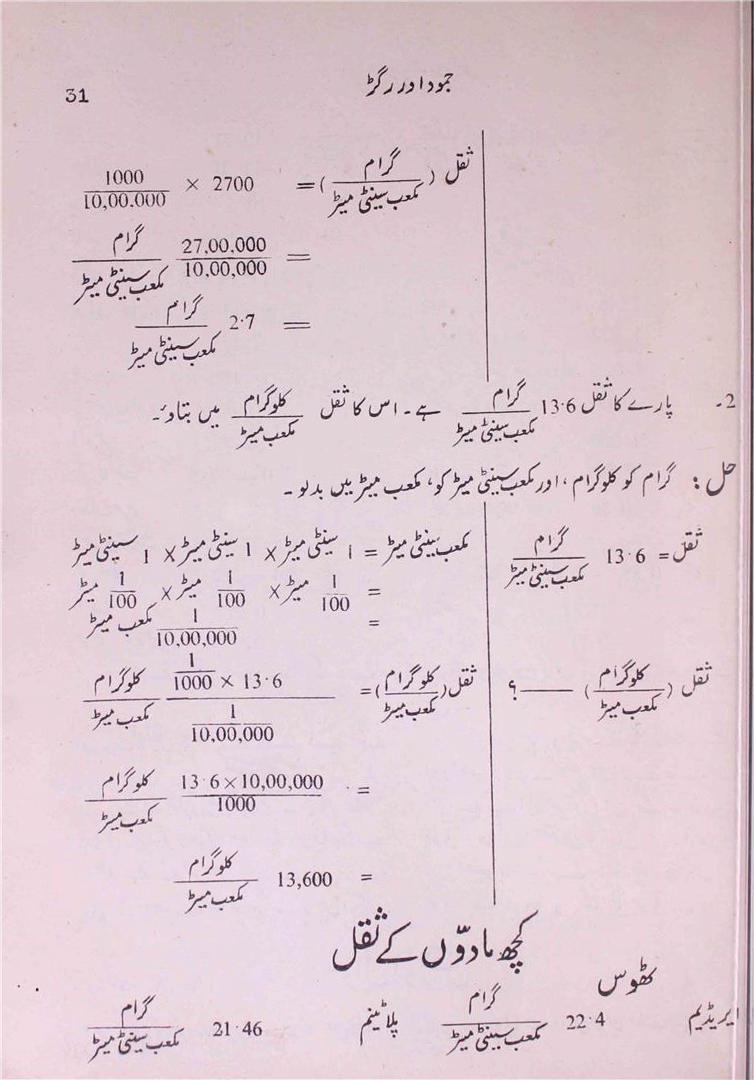 جمود اور رگڑ
31
ثقل (گرام / مکعب سینٹی میٹر) = 2700 × 1000 / 10,00.000
= 27,00.000 / 10,00,000 گرام / مکعب سینٹی میٹر
= 2·7 گرام / مکعب سینٹی میٹر
2۔ پارے کا ثقل 13·6 گرام / مکعب سینٹی میٹر ہے۔ اس کا ثقل کلوگرام / مکعب میٹر میں بتاؤ۔
حل: گرام کو کلوگرام، اور مکعب سینٹی میٹر کو، مکعب میٹر میں بدلو۔
ثقل = 13·6 گرام / مکعب سینٹی میٹر
ثقل (کلوگرام / مکعب میٹر) —— ؟
مکعب سینٹی میٹر = 1 سینٹی میٹر × 1 سینٹی میٹر × 1 سینٹی میٹر
= 1/100 میٹر × 1/100 میٹر × 1/100 میٹر
= 1 / 10,00,000 مکعب میٹر
ثقل (کلوگرام / مکعب میٹر) = (1/1000 × 13·6) / (1 / 10,00,000) کلوگرام / مکعب میٹر
= 13·6 × 10,00,000 / 1000 کلوگرام / مکعب میٹر
= 13,600 کلوگرام / مکعب میٹر
کچھ مادوّں کے ثقل
ٹھوس
ایریڈیم 22·4 گرام / مکعب سینٹی میٹر پلاٹینم 21·46 گرام / مکعب سینٹی میٹر